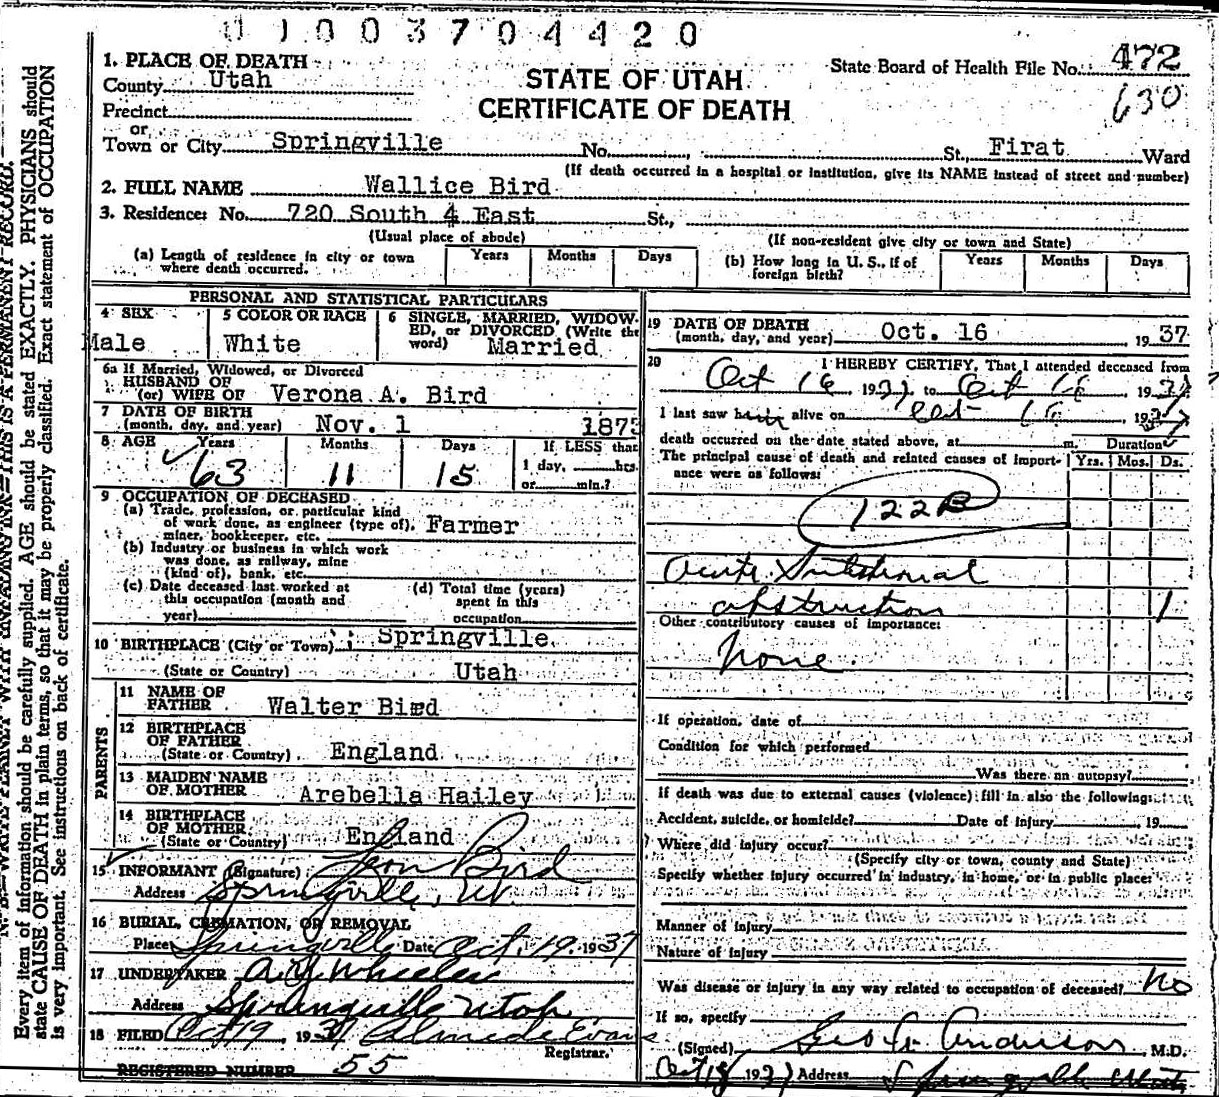 0 1 0 0 3 7 0 4 4 2 0
State Board of Health File No. 472
630
STATE OF UTAH
CERTIFICATE OF DEATH
1. PLACE OF DEATH
County Utah
Precinct
or
Town or City Springville No. , St., Firat Ward
(If death occurred in a hospital or institution, give its NAME instead of street and number)
2. FULL NAME Wallice Bird
3. Residence: No. 720 South 4 East St.,
(Usual place of abode) (If non-resident give city or town and State)
(a) Length of residence in city or town where death occurred. Years Months Days
(b) How long in U. S., if of foreign birth? Years Months Days
PERSONAL AND STATISTICAL PARTICULARS
4 SEX
Male
5 COLOR OR RACE
White
6 SINGLE, MARRIED, WIDOW-
ED, or DIVORCED (Write the
word) Married
6a If Married, Widowed, or Divorced
HUSBAND OF
(or) WIFE OF Verona A. Bird
7 DATE OF BIRTH
(month, day, and year) Nov. 1 1873
8 AGE Years Months Days If LESS than
63 11 15 1 day, hrs.
or min.?
9 OCCUPATION OF DECEASED
(a) Trade, profession, or particular kind
of work done, as engineer (type of), Farmer
miner, bookkeeper, etc.
(b) Industry or business in which work
was done, as railway, mine
(kind of), bank, etc.
(c) Date deceased last worked at
this occupation (month and
year)
(d) Total time (years)
spent in this
occupation
10 BIRTHPLACE (City or Town) Springville
(State or Country) Utah
PARENTS
11 NAME OF
FATHER Walter Bird
12 BIRTHPLACE
OF FATHER
(State or Country) England
13 MAIDEN NAME
OF MOTHER Arebella Hailey
14 BIRTHPLACE
OF MOTHER
(State or Country) England
15 INFORMANT (Signature) Leon Bird
Address Springville, Ut.
16 BURIAL, CREMATION, OR REMOVAL
Place Springville Date Oct. 19. 1937
17 UNDERTAKER A.Y. Wheeler
Address Springville Utah
18 FILED Oct 19, 1937 Evans
Registrar.
REGISTERED NUMBER 55
19 DATE OF DEATH
(month, day, and year) Oct. 16 1937
20 I HEREBY CERTIFY, That I attended deceased from
Oct 16 1937, to Oct 16 1937
I last saw him alive on Oct 16 1937
death occurred on the date stated above, at m. Duration
The principal cause of death and related causes of import-
ance were as follows: Yrs. Mos. Ds.
122B
Acute Intestinal
obstruction 1
Other contributory causes of importance:
None
If operation, date of
Condition for which performed
Was there an autopsy?
If death was due to external causes (violence) fill in also the following:
Accident, suicide, or homicide? Date of injury , 19
Where did injury occur?
(Specify city or town, county and State)
Specify whether injury occurred in industry, in home, or in public place:
Manner of injury
Nature of injury
Was disease or injury in any way related to occupation of deceased? No
If so, specify
(Signed) Geo. A. Anderson, M.D.
Oct 18 1937 Address Springville Utah
N. B.—WRITE PLAINLY WITH UNFADING INK—THIS IS A PERMANENT RECORD.
Every item of information should be carefully supplied. AGE should be stated EXACTLY. PHYSICIANS should
state CAUSE OF DEATH in plain terms, so that it may be properly classified. Exact statement of OCCUPATION
is very important. See instructions on back of certificate.